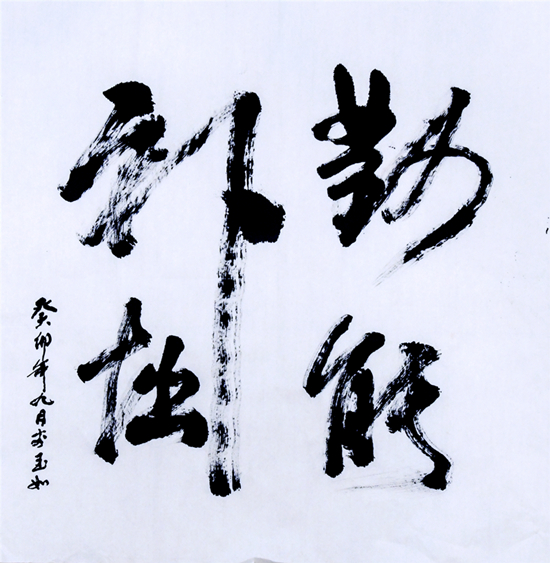 勤能
补拙
癸卯年九月李玉如